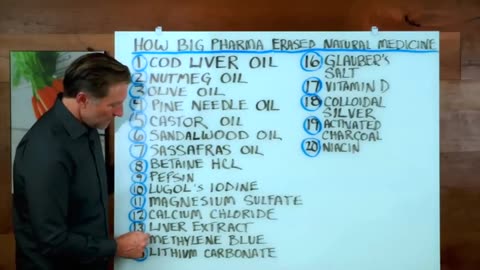 HOW BIG PHARMA ERASED NATURAL MEDICINE
1 COD LIVER OIL
2 NUTMEG OIL
3 OLIVE OIL
4 PINE NEEDLE OIL
5 CASTOR OIL
6 SANDALWOOD OIL
7 SASSAFRAS OIL
8 BETAINE HCL
9 PEPSIN
10 LUGOL'S IODINE
11 MAGNESIUM SULFATE
12 CALCIUM CHLORIDE
13 LIVER EXTRACT
METHYLENE BLUE
LITHIUM CARBONATE
16 GLAUBER'S
SALT
17 VITAMIN D
18 COLLOIDAL
SILVER
19 ACTIVATED
CHARCOAL
20 NIACIN